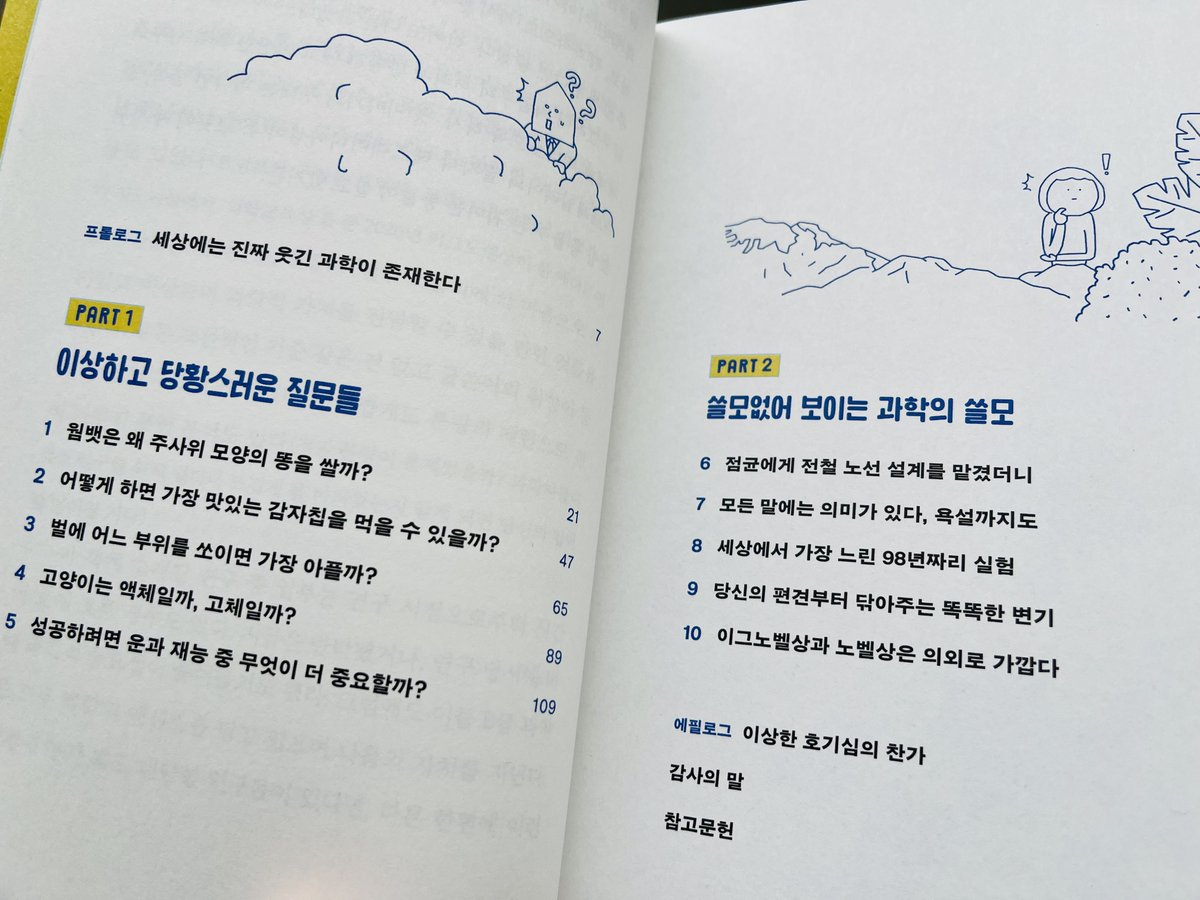 프롤로그 세상에는 진짜 웃긴 과학이 존재한다 7
PART 1
이상하고 당황스러운 질문들
1 웜뱃은 왜 주사위 모양의 똥을 쌀까? 21
2 어떻게 하면 가장 맛있는 감자칩을 먹을 수 있을까? 47
3 벌에 어느 부위를 쏘이면 가장 아플까? 65
4 고양이는 액체일까, 고체일까? 89
5 성공하려면 운과 재능 중 무엇이 더 중요할까? 109
PART 2
쓸모없어 보이는 과학의 쓸모
6 점균에게 전철 노선 설계를 맡겼더니
7 모든 말에는 의미가 있다, 욕설까지도
8 세상에서 가장 느린 98년짜리 실험
9 당신의 편견부터 닦아주는 똑똑한 변기
10 이그노벨상과 노벨상은 의외로 가깝다
에필로그 이상한 호기심의 찬가
감사의 말
참고문헌